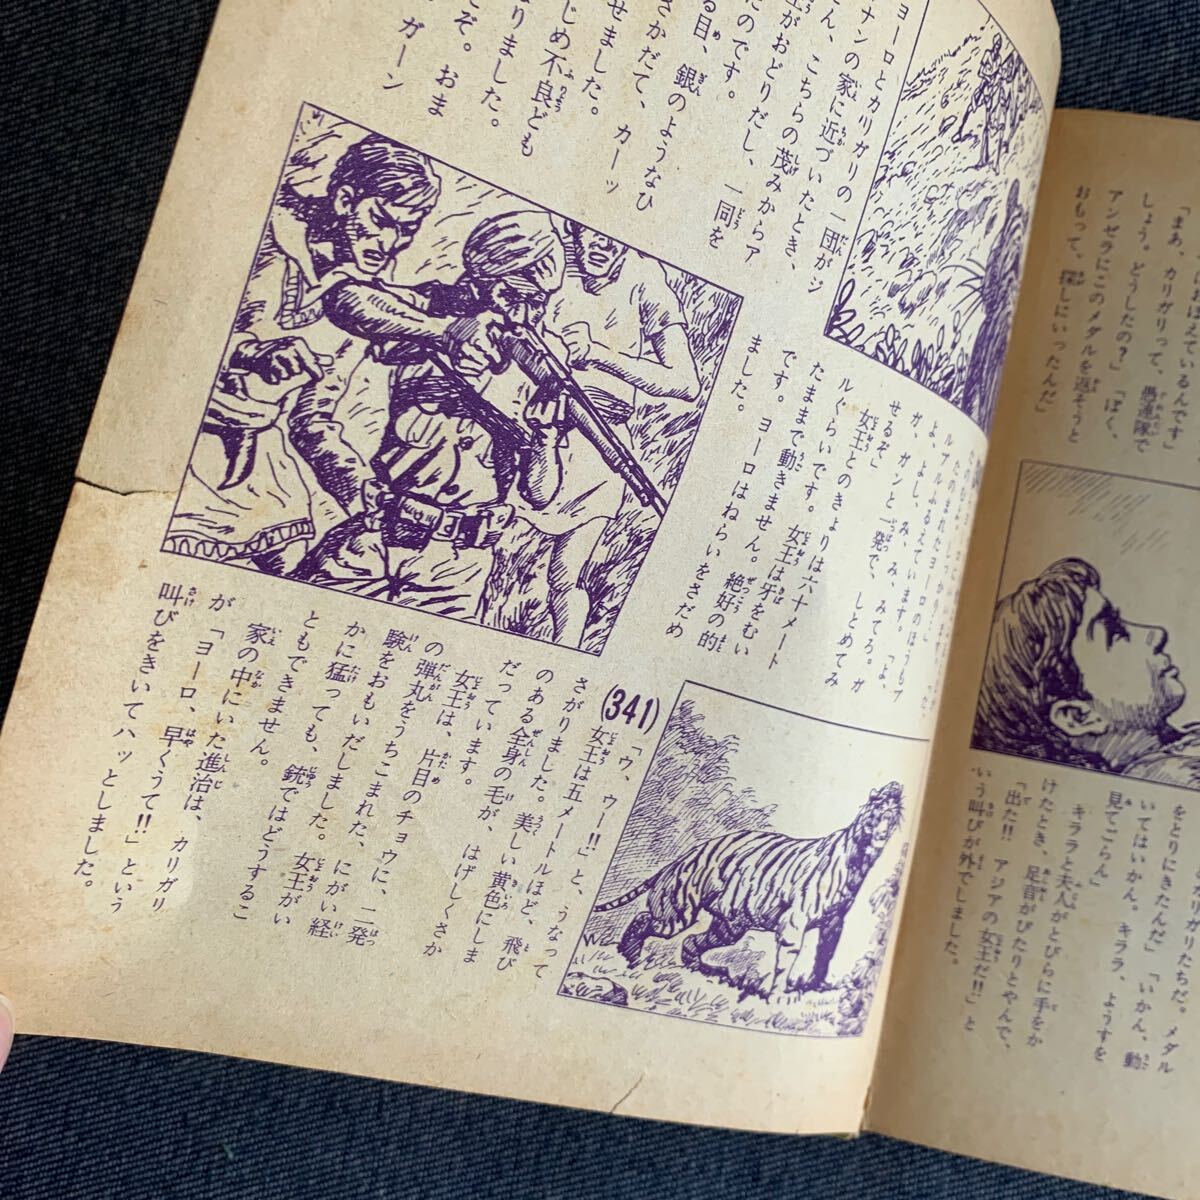 ほえているんです」
「まあ、カリガリって、愚連隊で
しょう。どうしたの?」「ぼく、
アンゼラにこのメダルを返そうと
おもって、探しにいったんだ」
カリガリたちだ。メダル
をとりにきたんだ」「いかん、動
いてはいかん。キララ、ようすを
見てごらん」
キララと夫人がとびらに手をか
けたとき、足音がぴたりとやんで、
「出た!! アジアの女王だ!!」と
いう叫びが外でしました。
ヨーロとカリガリの一団がジ
ナンの家に近づいたとき、
ん、こちらの茂みからア
王がおどりだし、一同を
たのです。
る目、銀のようなひ
さかだて、カーッ
せました。
じめ不良ども
りました。
こぞ。おま
ガーン
よ、よし、み、み、みてろ。ガ
ガ、ガンと一発で、しとめてみ
せるぞ」
女王とのきょりは六十メート
ルぐらいです。女王は牙をむい
たままで動きません。絶好の的
です。ヨーロはねらいをさだめ
ました。
(341)
「ウ、ウー!!」と、うなって
女王は五メートルほど、飛び
さがりました。美しい黄色にしま
のある全身の毛が、はげしくさか
だっています。
女王は、片目のチョウに、二発
の弾丸をうちこまれた、にがい経
験をおもいだしました。女王がい
かに猛っても、銃ではどうするこ
ともできません。
家の中にいた進治は、カリガリ
が「ヨーロ、早くうて!!」という
叫びをきいてハッとしました。